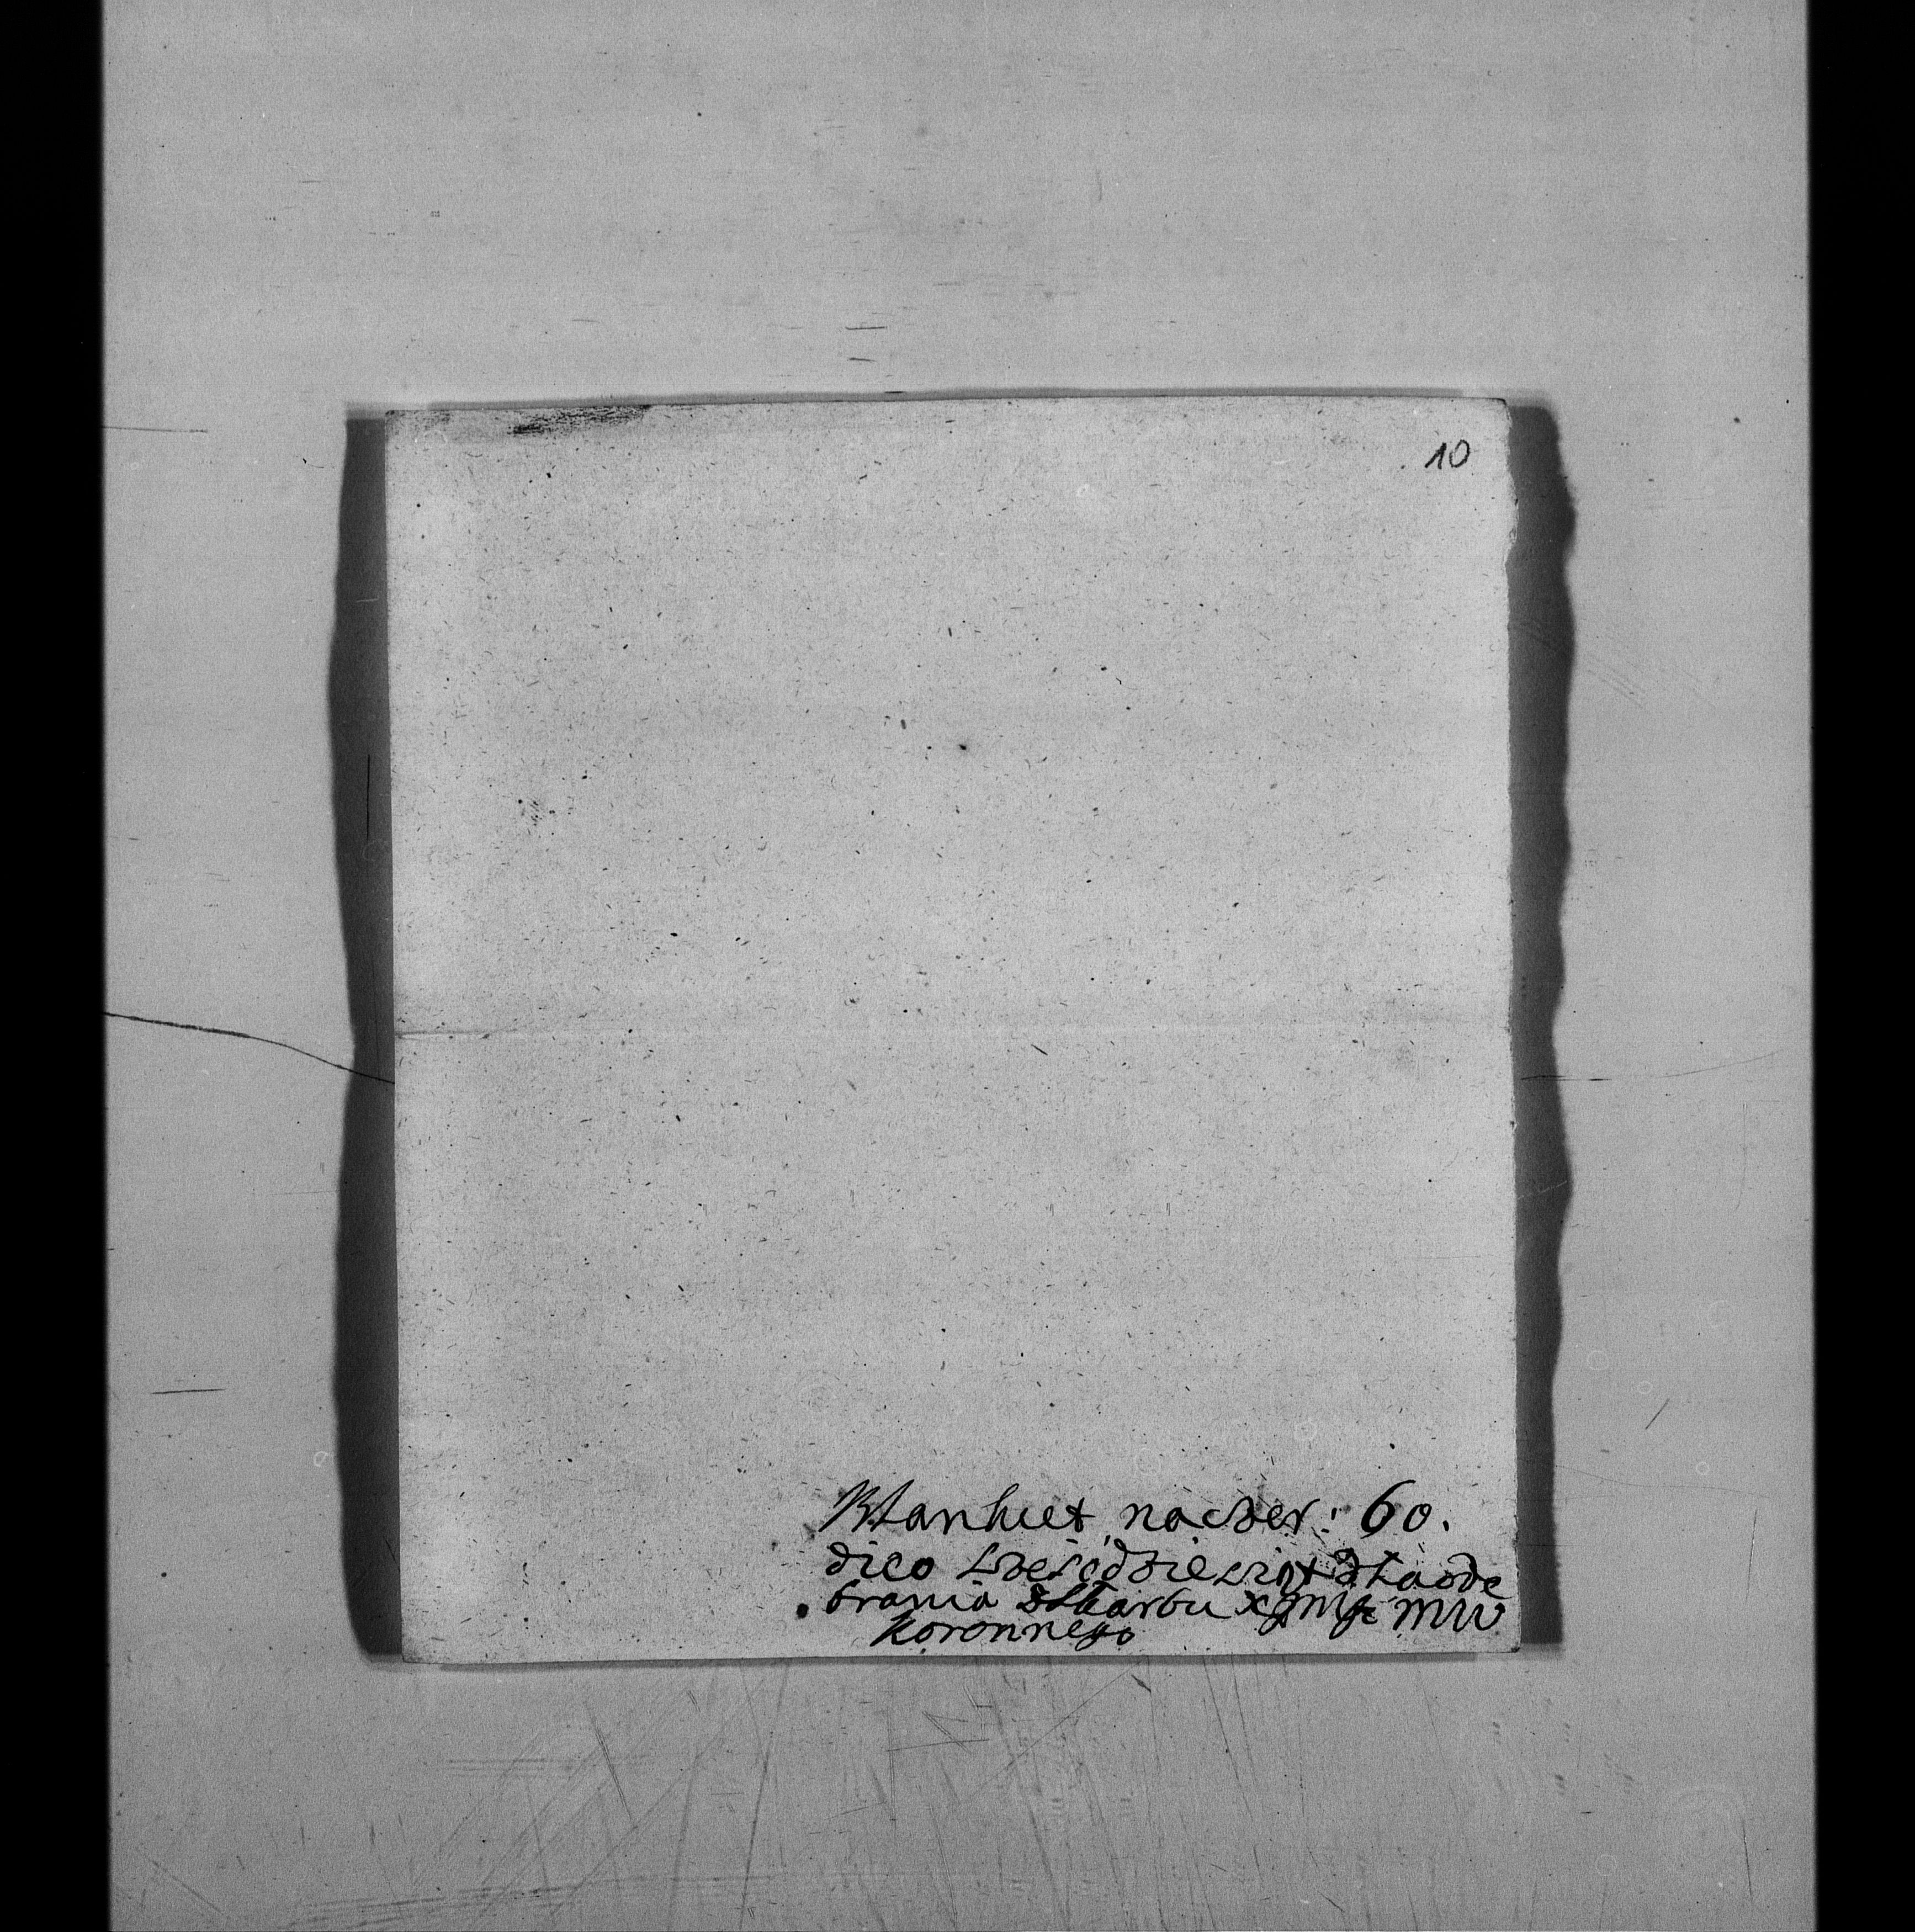 10
Blanket na czer: 60.
dico szejśdziesiąt dla ode
brania Skarbu
Koronnego